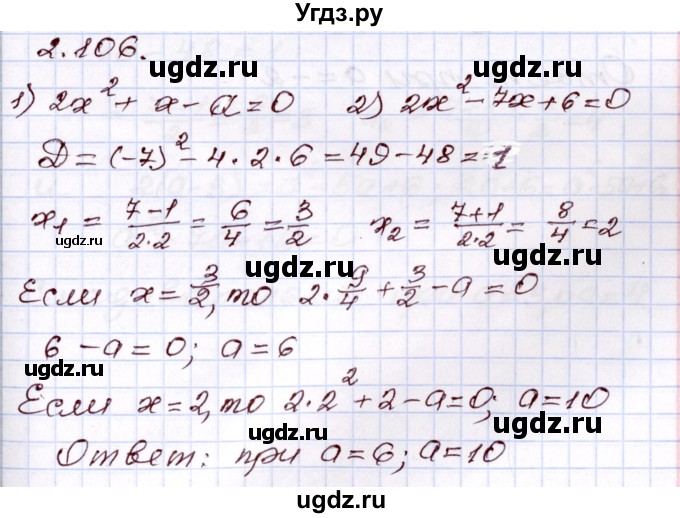 Угдз.ру
2.106.
ugdz.ru ugdz.ru
1) 2x² + x - a = 0 2) 2x² - 7x + 6 = 0
D = (-7)² - 4 · 2 · 6 = 49 - 48 = 1
x₁ = (7-1)/(2·2) = 6/4 = 3/2 x₂ = (7+1)/(2·2) = 8/4 = 2
ugdz.ru ugdz.ru ugdz.ru
Если x = 3/2, то 2 · 9/4 + 3/2 - a = 0
6 - a = 0; a = 6
ugdz.ru ugdz.ru
Если x = 2, то 2 · 2² + 2 - a = 0; a = 10
ugdz.ru ugdz.ru
Ответ: при a = 6; a = 10
ugdz.ru